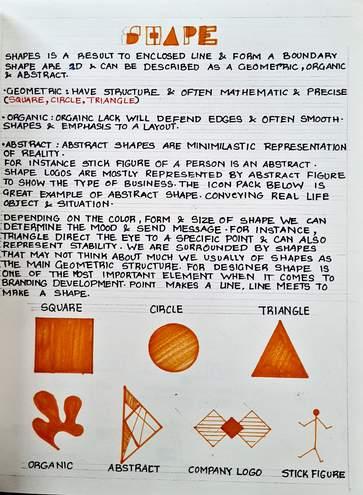 SHAPE
SHAPES IS A RESULT TO ENCLOSED LINE & FORM A BOUNDARY
SHAPE ARE 2D & CAN BE DESCRIBED AS A GEOMETRIC, ORGANIC
& ABSTRACT.
•GEOMETRIC: HAVE STRUCTURE & OFTEN MATHEMATIC & PRECISE
(SQUARE, CIRCLE, TRIANGLE)
•ORGANIC: ORGAINC LACK WILL DEFEND EDGES & OFTEN SMOOTH.
SHAPES & EMPHASIS TO A LAYOUT.
•ABSTRACT: ABSTRACT SHAPES ARE MINIMILASTIC REPRESENTATION
OF REALITY.
FOR INSTANCE STICK FIGURE OF A PERSON IS AN ABSTRACT.
SHAPE LOGOS ARE MOSTLY REPRESENTED BY ABSTRACT FIGURE
TO SHOW THE TYPE OF BUSINESS. THE ICON PACK BELOW IS
GREAT EXAMPLE OF ABSTRACT SHAPE. CONVEYING REAL LIFE
OBJECT & SITUATION.
DEPENDING ON THE COLOR, FORM & SIZE OF SHAPE WE CAN
DETERMINE THE MOOD & SEND MESSAGE. FOR INSTANCE,
TRIANGLE DIRECT THE EYE TO A SPECIFIC POINT & CAN ALSO
REPRESENT STABILITY. WE ARE SURROUNDED BY SHAPES
THAT MAY NOT THINK ABOUT MUCH WE USUALLY OF SHAPES AS
THE MAIN GEOMETRIC STRUCTURE. FOR DESIGNER SHAPE IS
ONE OF THE MOST IMPORTANT ELEMENT WHEN IT COMES TO
BRANDING DEVELOPMENT. POINT MAKES A LINE, LINE MEETS TO
MAKE A SHAPE.
SQUARE CIRCLE TRIANGLE
ORGANIC ABSTRACT COMPANY LOGO STICK FIGURE